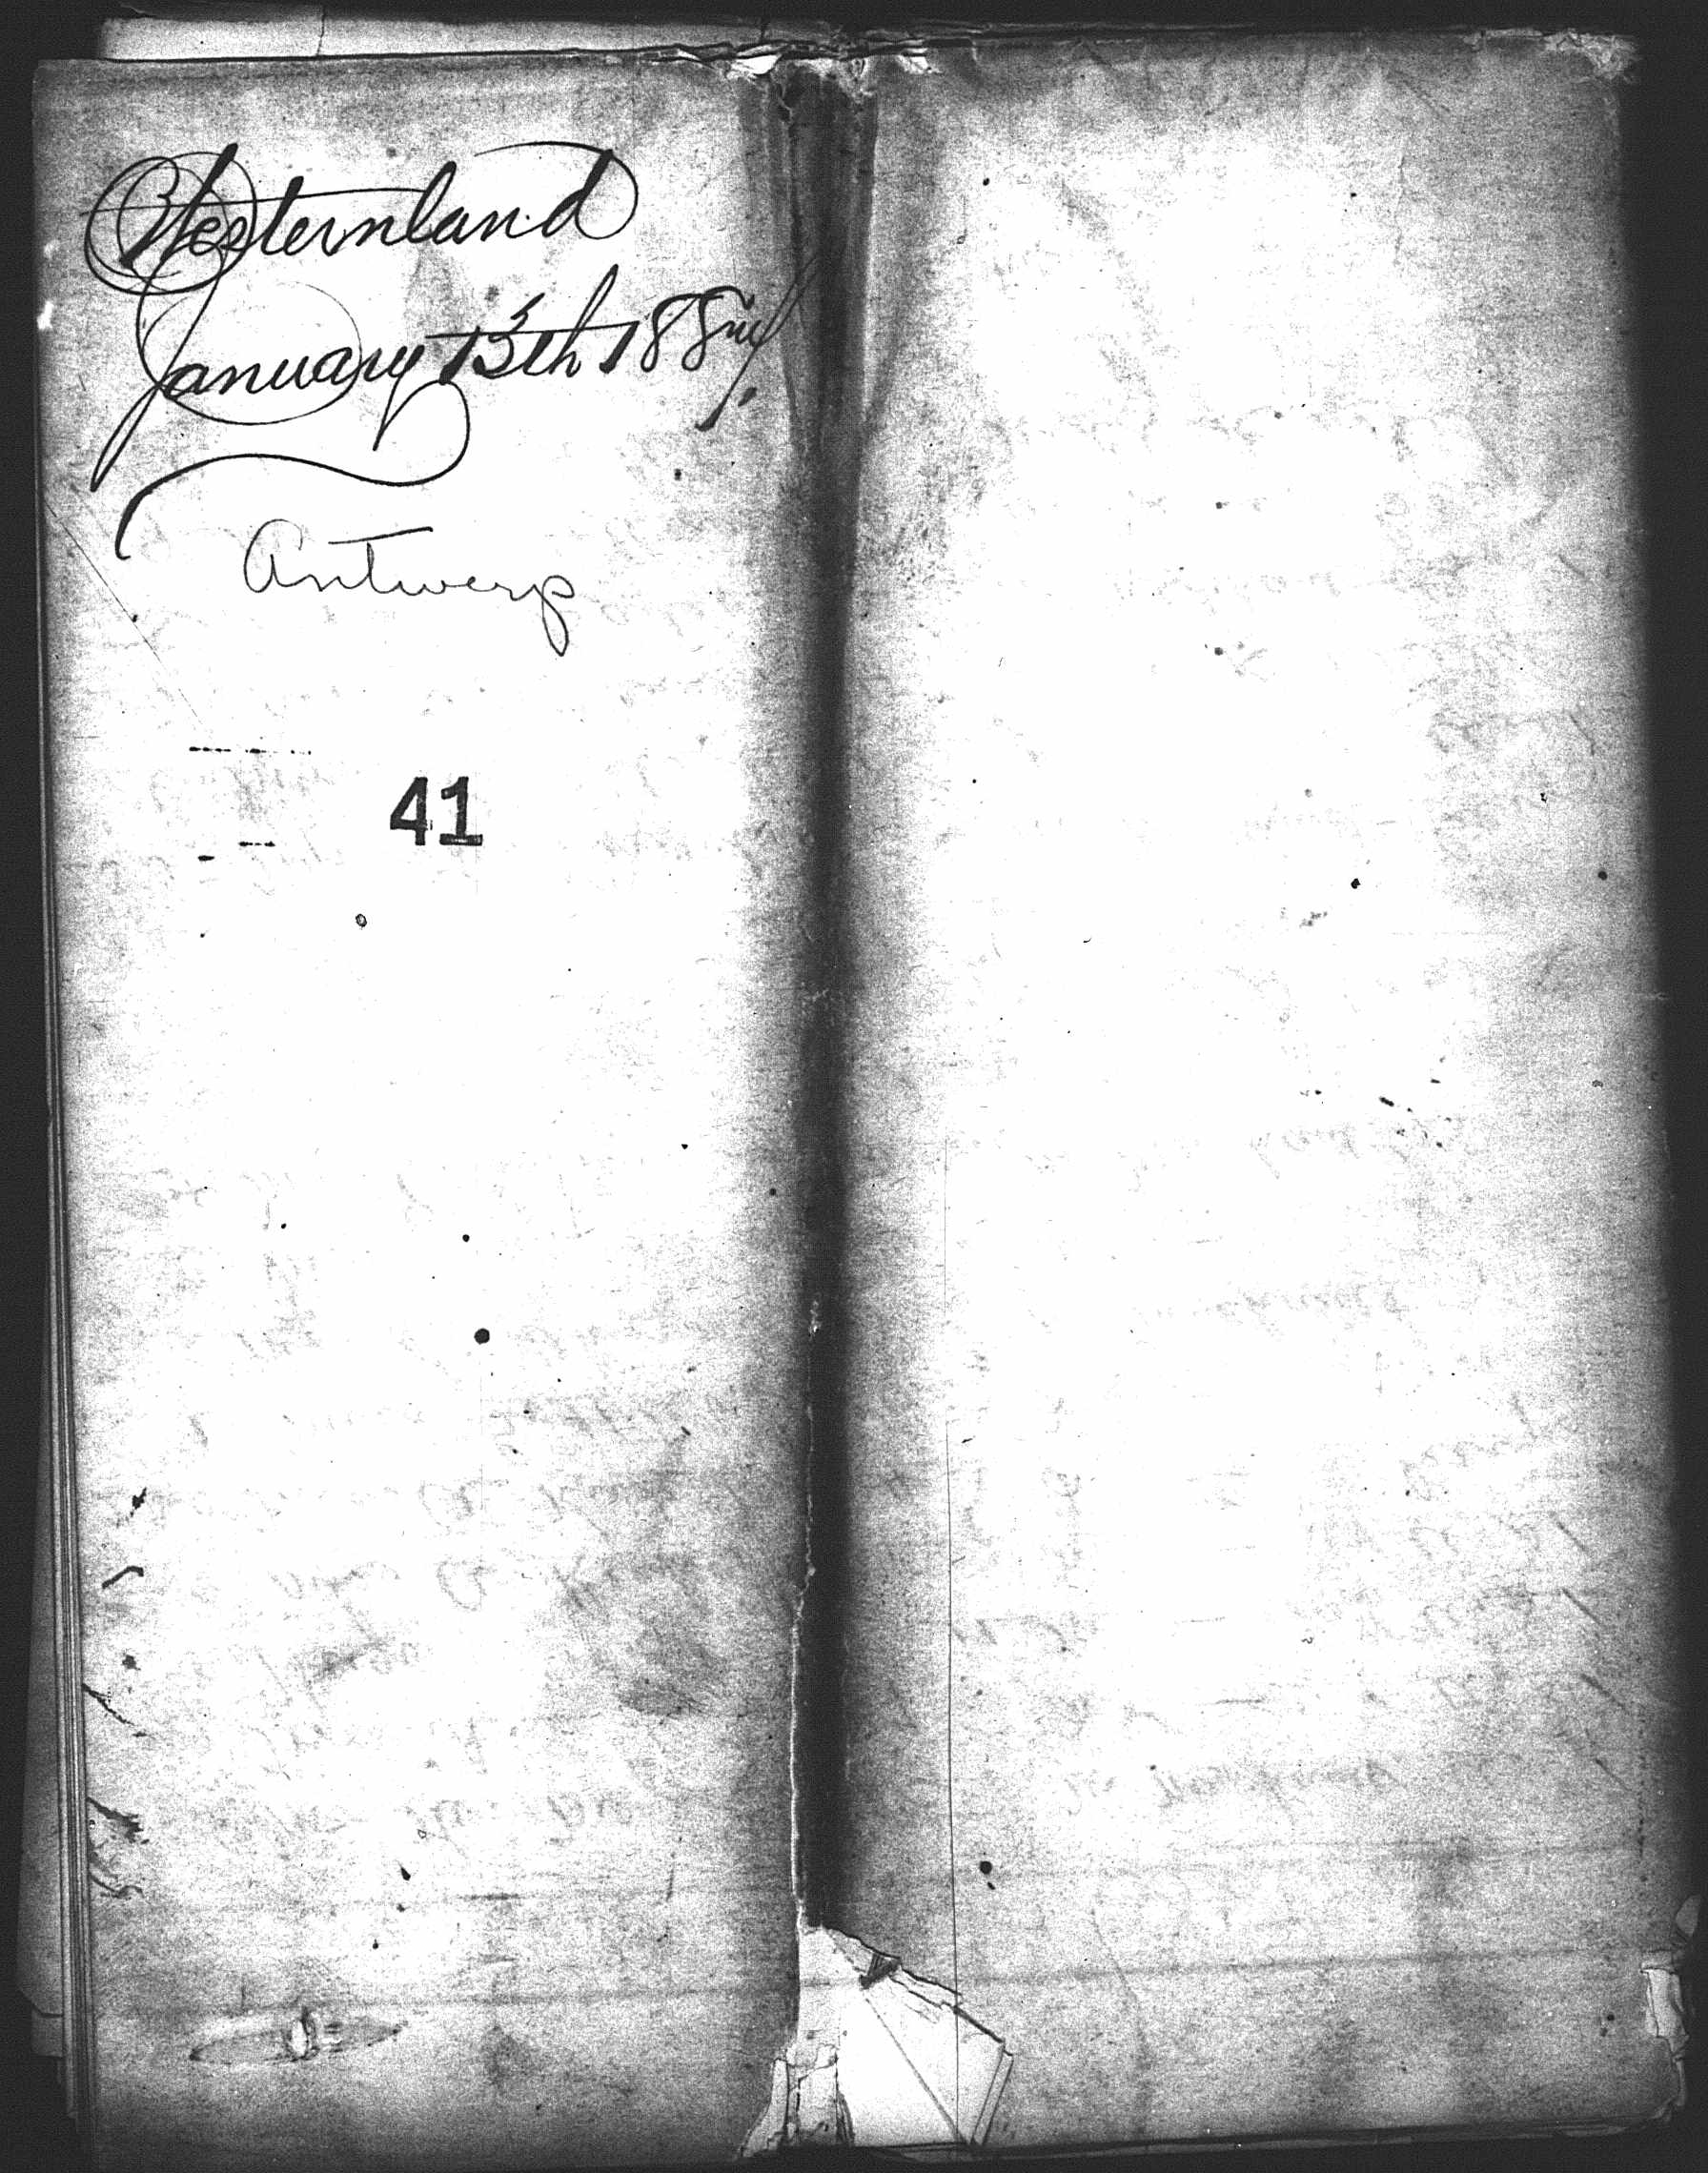 Westernland
January 13th 1887.
Antwerp
41